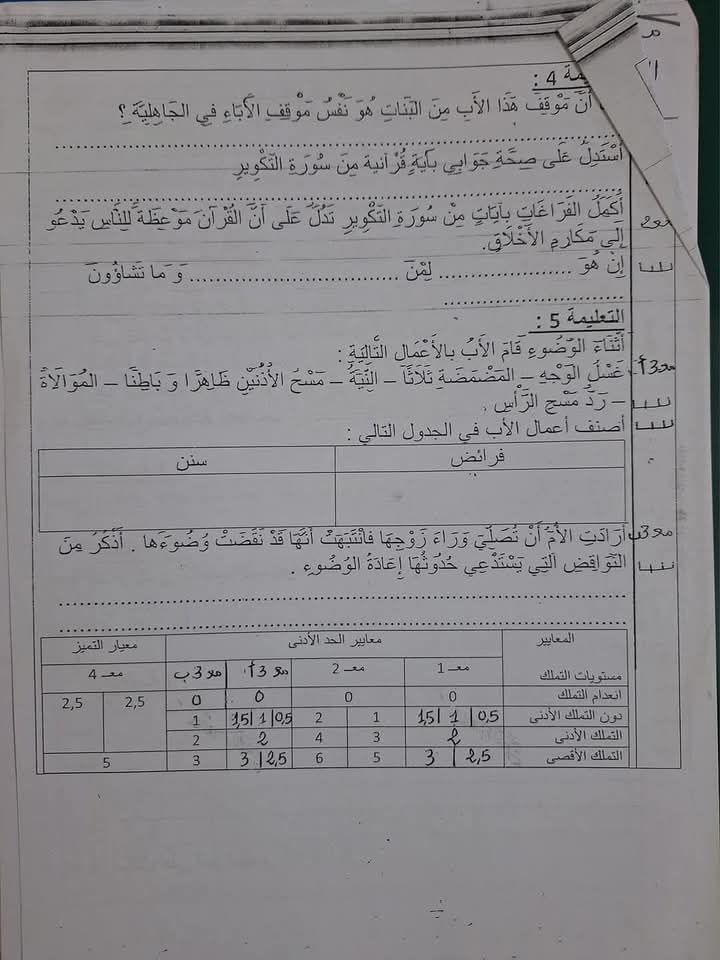 مة 4 :
أَنَّ مَوْقِفَ هَذَا الأَبِ مِنَ البَنَاتِ هُوَ نَفْسُ مَوْقِفِ الأَبَاءِ فِي الجَاهِلِيَّةِ ؟
أَسْتَدِلُّ عَلَى صِحَّةِ جَوَابِي بِآيَةٍ قُرْآنِيَة مِنْ سُورَةِ التَّكْوِيرِ
أُكْمِلُ الفَرَاغَاتِ بِآيَاتٍ مِنْ سُورَةِ التَّكْوِيرِ تَدُلُّ عَلَى أَنَّ القُرْآنَ مَوْعِظَةٌ لِلنَّاسِ يَدْعُو
إِلَى مَكَارِمِ الأَخْلَاقِ.
إِنْ هُوَ .................... لِمَنْ ................................ وَ مَا تَشَاؤُونَ
...........................
التعليمة 5 :
أَثْنَاءَ الوُضُوءِ قَامَ الأَبُ بِالأَعْمَالِ التَّالِيَةِ :
مع 3أ غَسْلُ الوَجْهِ – المَضْمَضَةِ ثَلَاثًا – النِّيَّةُ – مَسْحَ الأُذُنَيْنِ ظَاهِرًا وَ بَاطِنًا – المُوَالَاةُ
– رَدُّ مَسْحِ الرَّأْسِ .
أصنف أعمال الأب في الجدول التالي :
فرائض سنن
مع 3ب أَرَادَتِ الأُمُّ أَنْ تُصَلِّيَ وَرَاءَ زَوْجِهَا فَانْتَبَهَتْ أَنَّهَا قَدْ نَقَضَتْ وُضُوءَهَا . أَذْكُرُ مِنَ
النَّوَاقِضِ الَتِي يَسْتَدْعِي حُدُوثُهَا إِعَادَةُ الوُضُوءِ .
المعايير معايير الحد الأدنى معيار التميز
مستويات التملك معـ 1 معـ 2 مع 3أ مع 3ب معـ 4
انعدام التملك 0 0 0 0 2,5 2,5
دون التملك الأدنى 0,5 1 1,5 1 2 0,5 1 1,5 1
التملك الأدنى 2 3 4 2 2
التملك الأقصى 2,5 3 5 6 2,5 3 3 5